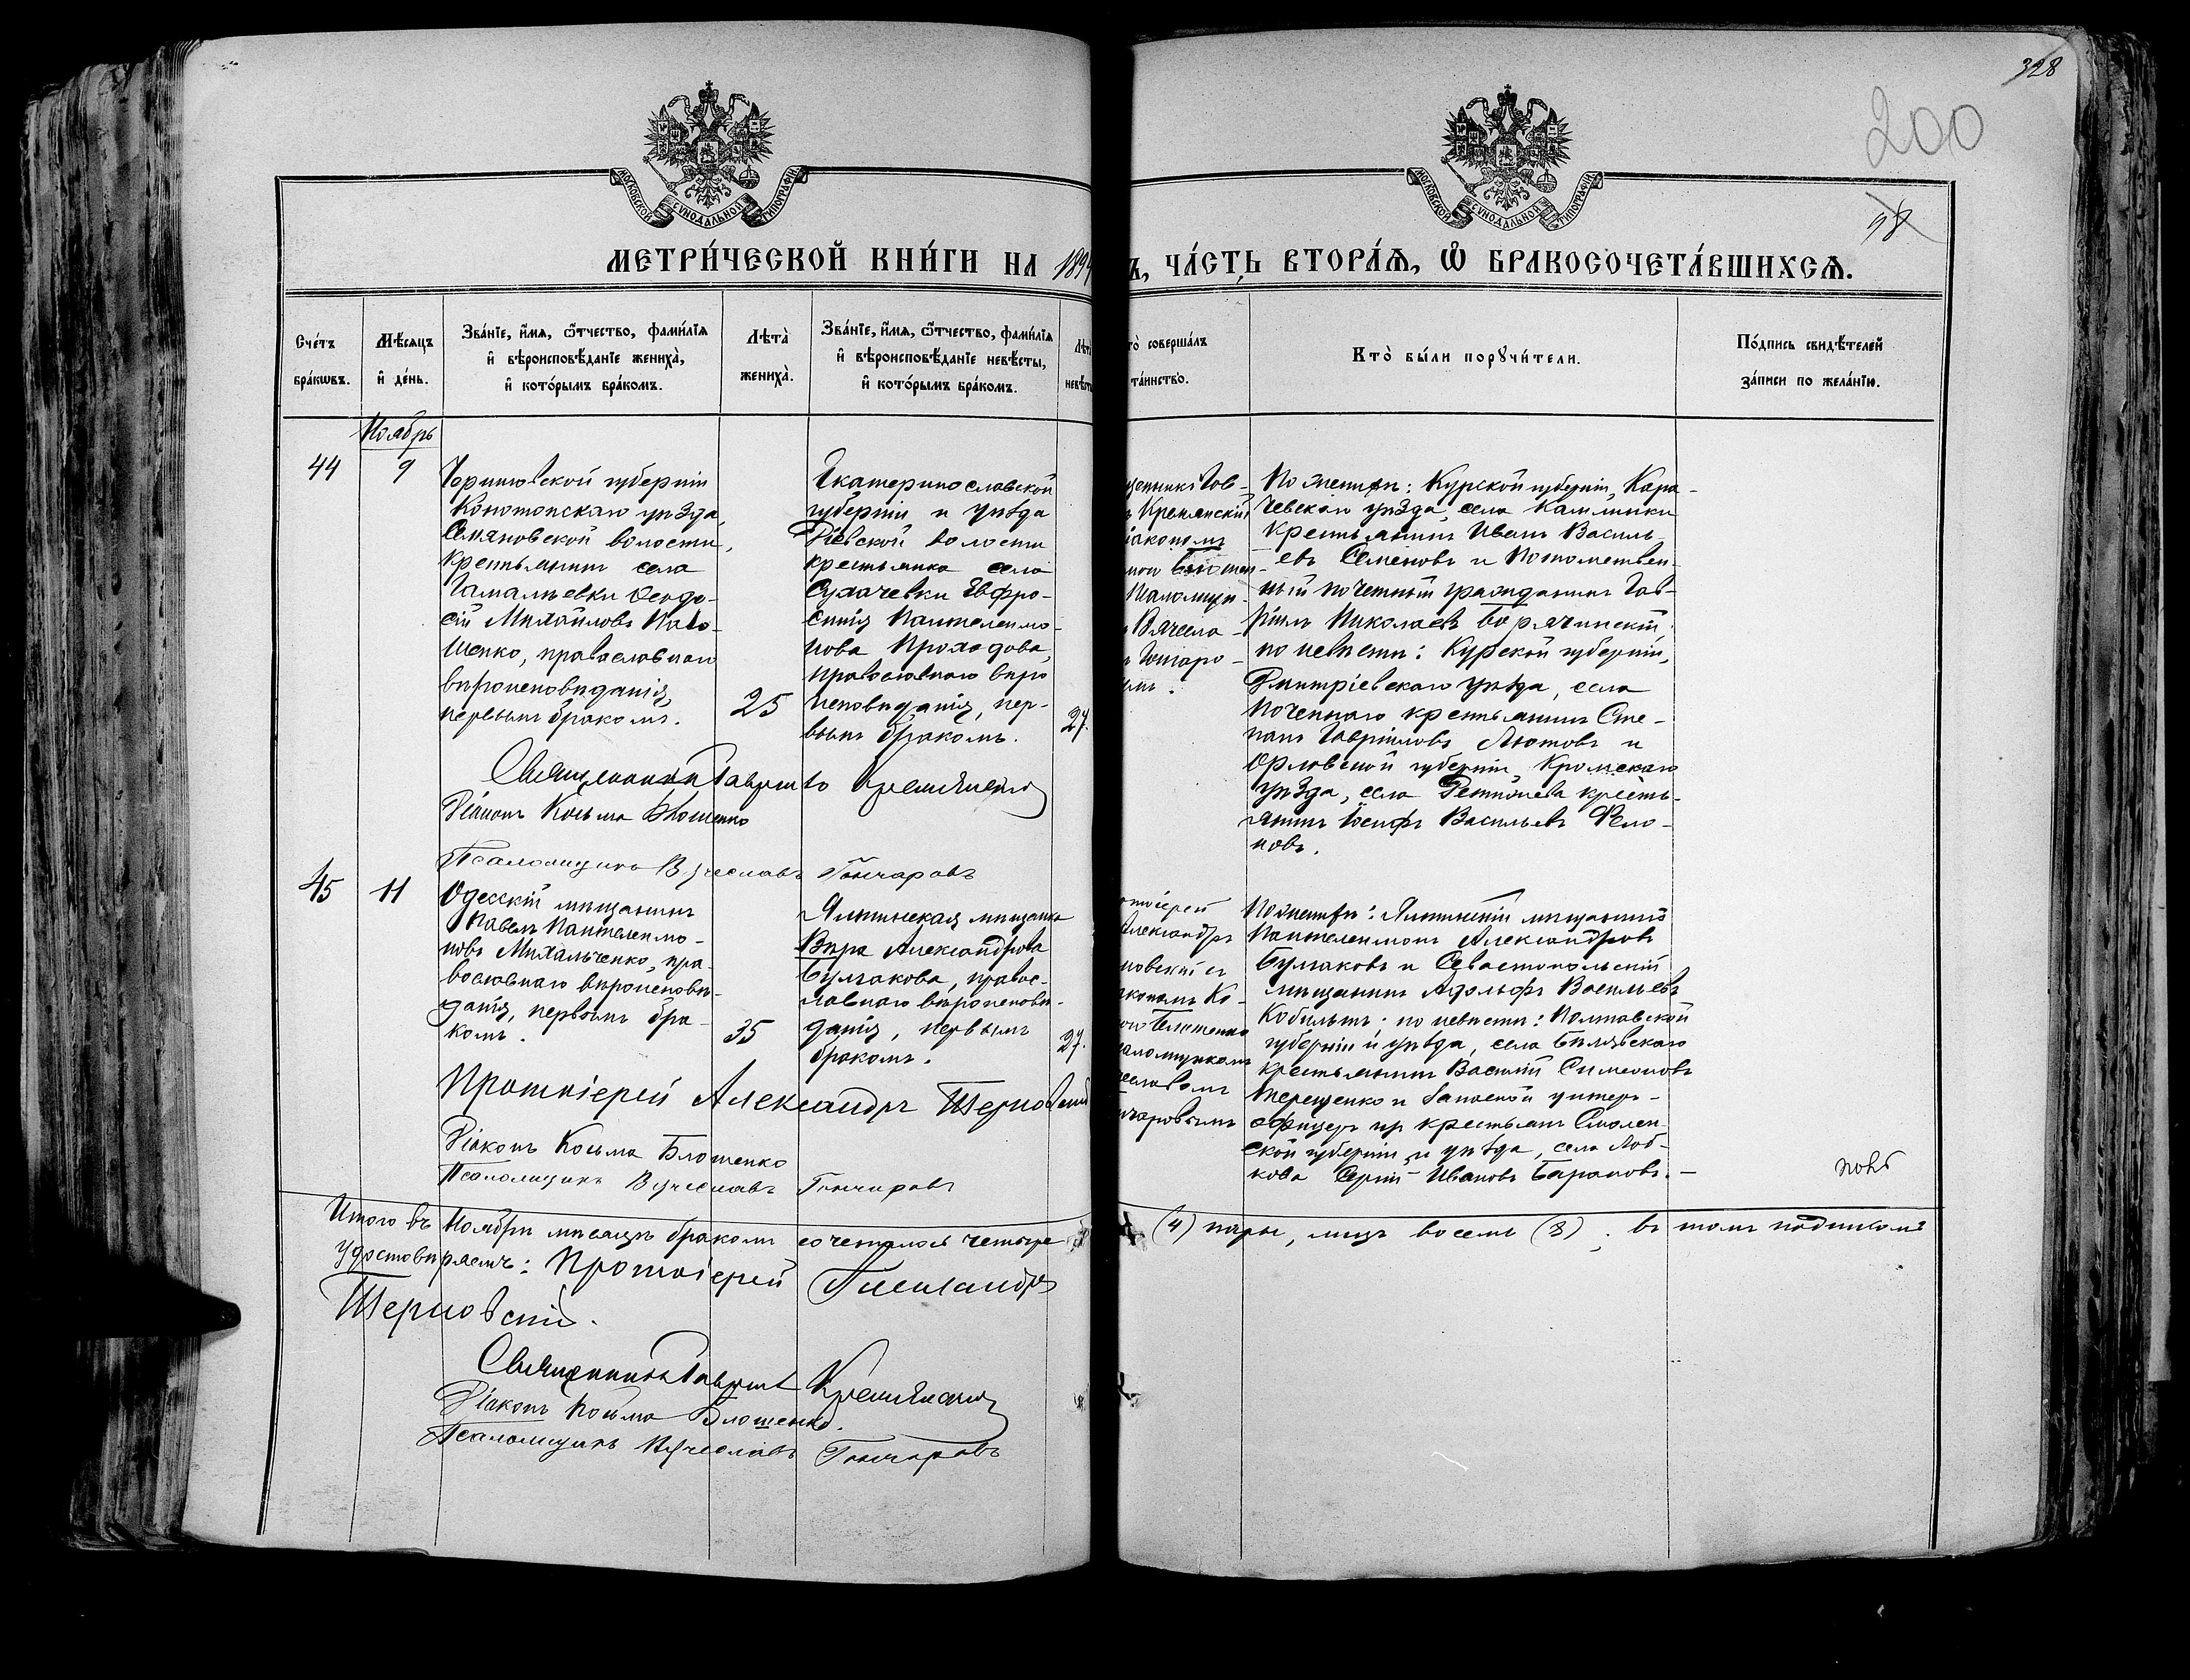 328
200
98
МОСКОВСКОЙ СУНОДАЛЬНОЙ ТИПОГРАФІИ
МОСКОВСКОЙ СУНОДАЛЬНОЙ ТИПОГРАФІИ
МЕТРИ́ЧЕСКОЙ КНИ́ГИ НА 1894
Ъ, ЧА́СТЬ ВТОРА́Ѧ, Ѽ БРАКОСОЧЕТА́ВШИХСѦ.
Сче́тъ бра́кѡвъ.
Мѣ́сяцъ и҆ де́нь.
Зва́нїе, и҆́мѧ, ѻ҆́тчество, фамилїѧ и҆ вѣроисповѣ́данїе жениха̀, и҆ кото́рымъ бра́комъ.
Лѣта̀ жениха̀.
Зва́нїе, и҆́мѧ, ѻ҆́тчество, фамилїѧ и҆ вѣроисповѣ́данїе невѣ́сты, и҆ кото́рымъ бра́комъ.
Лѣта невѣсты
то̀ соверша́лъ та́инство.
Кто̀ бы́ли порꙋчи́тели.
По́дпись свидѣ́телей за́писи по жела́нїю.
Ноябрь
44
9
Черниговской губерніи
Конотопскаго уѣзда,
Семяновской волости,
крестьянинъ села
Гамалѣевки Ѳеодо-
сій Михайловъ
шенко, православнаго
вѣроисповѣданія,
первымъ бракомъ.
25
Екатеринославской
губерніи и уѣзда
Діевской волости
крестьянка села
Сухачевки Евфро-
синія Пантелеимо-
нова Проходова,
православнаго вѣро
исповѣданія, пер-
вымъ бракомъ.
27.
щенникъ Гав-
ъ Кремянскій
іакономъ
Псаломщи-
Вячесла-
Гончаро-
вымъ.
По женихѣ: Курской губерніи, Кара-
чевскаго уѣзда, села
крестьянинъ Иванъ Василь-
евъ Семеновъ и Потомствен-
ный почетный гражданинъ Гав-
ріилъ Николаевъ
по невѣстѣ: Курской губерніи,
Дмитріевскаго уѣзда, села
крестьянинъ Сте-
панъ Гавріиловъ Лютовъ и
Орловской губерніи, Кромскаго
уѣзда, села крестья-
янинъ Іосифъ Васильевъ
новъ.
Священникъ Гавріилъ Кремянскій
Діаконъ Косьма Блошенко
Псаломщикъ Вячеславъ Гончаровъ
45
11
Одесскій мѣщанинъ
Павелъ Пантелеимо-
новъ Михальченко, пра-
вославнаго вѣроисповѣ-
данія, первымъ бра-
комъ.
35
Ялтинская мѣщанка
Вѣра Александрова
Булгакова, правос-
лавнаго вѣроисповѣ-
данія, первымъ
бракомъ.
27.
отоіерей
Александръ
новскій съ
акономъ Ко-
ою Блошенко
саломщикомъ
чеславомъ
нчаровымъ
По женихѣ: Ялтинскій мѣщанинъ
Пантелеимонъ Александровъ
Булгаковъ и Севастопольскій
мѣщанинъ Адольфъ Васильевъ
; по невѣстѣ: Полтавской
губерніи и уѣзда, села
крестьянинъ Василій Симеоновъ
Терещенко и Запасной унтеръ-
офицеръ изъ крестьянъ Смолен-
ской губерніи и уѣзда, села Лоб-
кова Сергій Ивановъ Барановъ.
Протоіерей Александръ Терновскій
Діаконъ Косьма Блошенко
Псаломщикъ Вячеславъ Гончаровъ
Итого въ Ноябрѣ мѣсяцѣ бракомъ сочеталось четыре
(4) пары, лицъ восемь (8); въ томъ подписомъ
удостовѣряемъ: Протоіерей Александръ
Терновскій.
Священникъ Гавріилъ Кремянскій
Діаконъ Косьма Блошенко.
Псаломщикъ Вячеславъ Гончаровъ